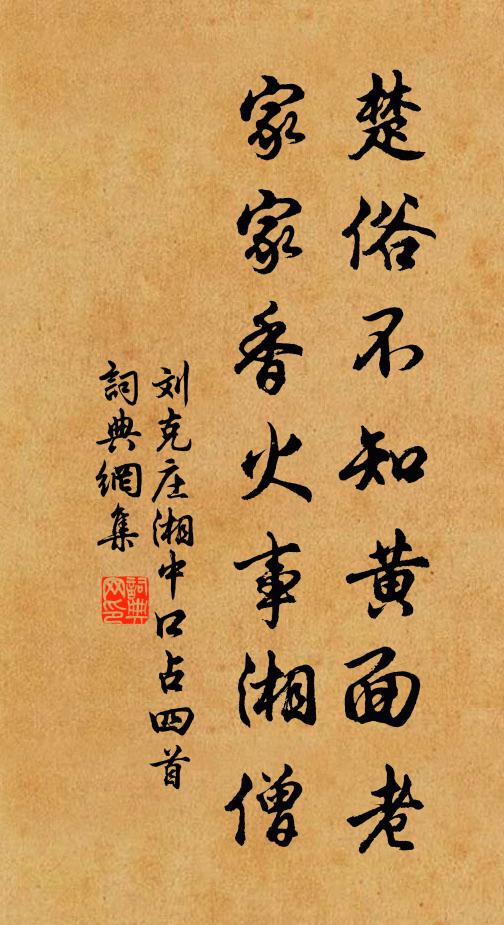 楚俗不知黄面老
家家香火事湘僧
刘克庄湘中口占四首
詞典網集
詞典网印